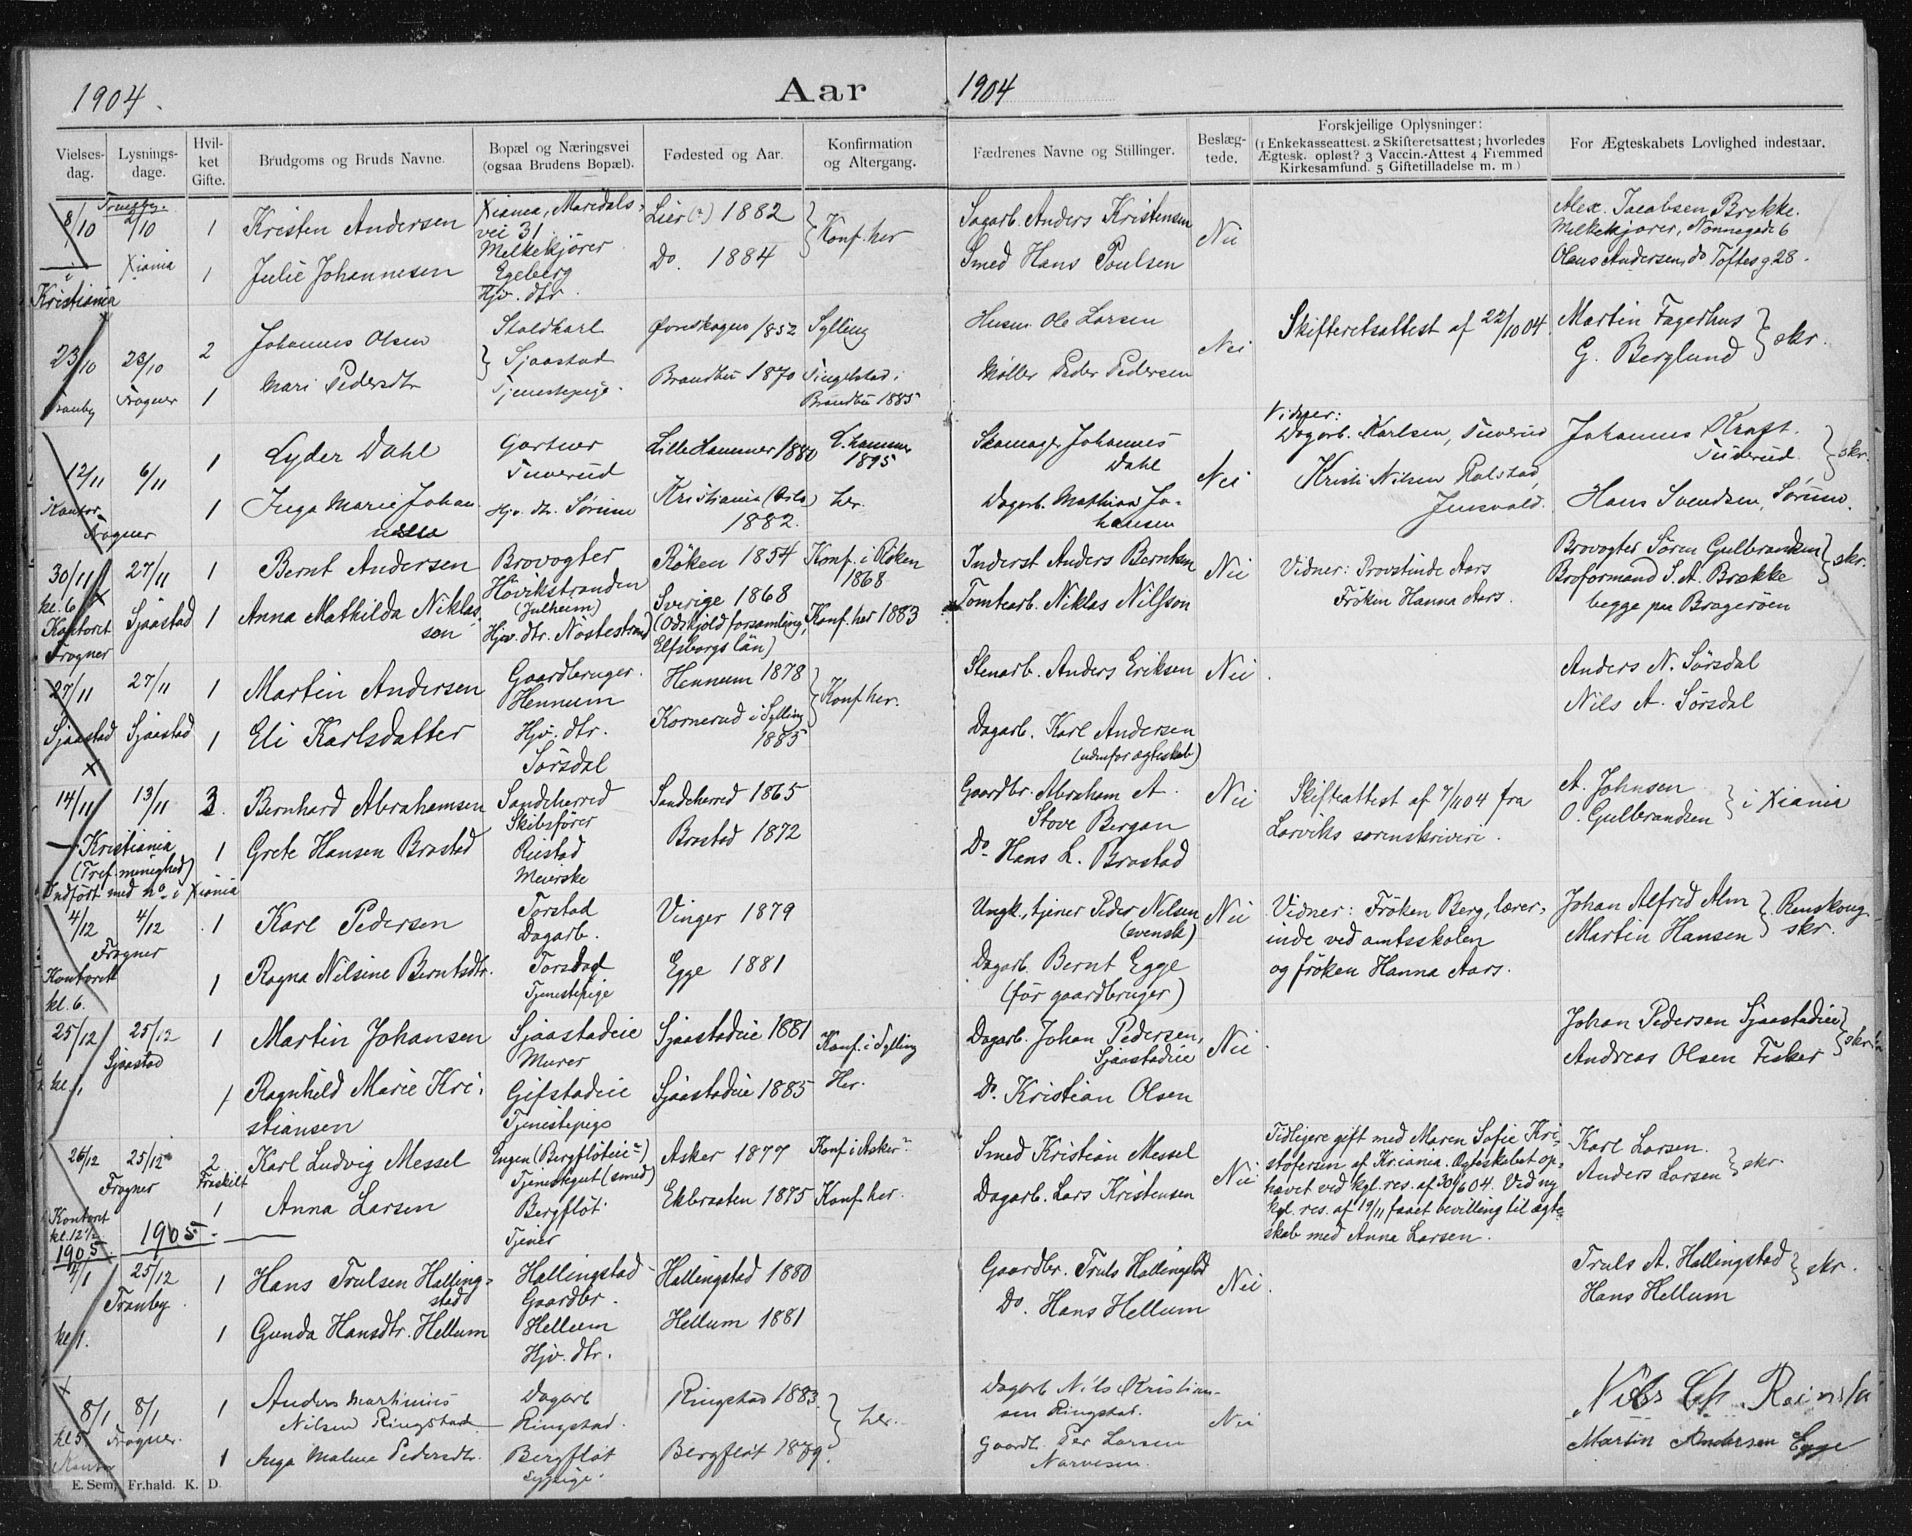 1904.
Aar
1904
Vielses-dag.
Lysnings-dage.
Hvil-ket Gifte.
Brudgoms og Bruds Navne.
Bopæl og Næringsvei (ogsaa Brudens Bopæl).
Fødested og Aar.
Konfirmation og Altergang.
Fædrenes Navne og Stillinger.
Beslæg-tede.
Forskjellige Oplysninger:
(1 Enkekasseattest. 2 Skifteretsattest; hvorledes
Ægtesk. opløst? 3 Vaccin.-Attest 4 Fremmed
Kirkesamfund. 5 Giftetilladelse m. m)
For Ægteskabets Lovlighed indestaar.
8/10
i
Kristiania
Tranby.
2/10
Xiania
1
1
Kristen Andersen
Julie Johannesen
Xiania, Maridals-
vei 31
Melkekjører
Egeberg
Hjv. dtr.
Lier (?) 1882
Do. 1884
Konf. her
Sagarb. Anders Kristensen
Smed Hans Poulsen
Nei
Alex. Jacobsen Brekke.
Melkekjører, Nonnegade 6
Olaus Andersen, do Toftesg 28.
23/10
Tranby
23/10
Frogner
2
1
Johannes Olsen
Mari Pedersdtr
Staldkarl
Sjaastad
Tjenestepige.
Øvreskogen 1852
Brandbu 1870
Sylling
Tingelstad i
Brandbu 1885
Husm. Ole Larsen
Møller Peder Pedersen
Nei
Skifteretsattest af 22/10 04.
Martin Fagerhus
G. Berglund
skr.
12/11
Kontor
Frogner
6/11
1
1
Lyder Dahl
Inga Marie Johan
Gartner
Tuverud
Hjv. dtr. Sørum
Lillehammer 1880
Kristiania (Oslo)
1882.
L.hammer
1895
her.
Skomager Johannes
Dahl
Dagarb. Mathias Jo-
hansen
Nei
Vidner:
Dagarb. Karlsen, Tuverud
Kristi Nilsen Ralstad,
Jensvold.
Johannes Kraft.
Tuverud.
skr.
Hans Svendsen, Sørum.
30/11
kl. 6
Kontoret
Frogner
27/11
Sjaastad
1
1
Bernt Andersen
Anna Mathilda Niklas-
son
Brovogter
Høvikstranden
(Julheim)
Hjv. dtr. Nøstestrand
Røken 1854
Sverige 1868
(Ødskjöld forsamling,
Elfsborgs län)
Konf. i Røken
1868
Konf. her 1883
Inderst Anders Berntsen
Tomtearb. Niklas Nilsson
Nei
Vidner: Provstinde Aars
Frøken Hanna Aars.
Brovogter Søren Gulbrandsen
Broformand S. A. Brække
begge paa Bragerøen
skr.
27/11
Sjaastad
27/11
Sjaastad
1
1
Martin Andersen
Eli Karlsdatter
Gaardbruger.
Hennum
Hjv. dtr.
Sørsdal
Hennum 1878
Kornerud i Sylling
1885
Konf her.
Stenarb. Anders Eriksen
Dagarb. Karl Andersen
(udenfor ægteskab)
Nei.
Anders N. Sørsdal
Nils A. Sørsdal
14/11
13/11
Kristiania
(Tref. menighed)
Indført med no i Xiania
3.
1
Bernhard Abrahamsen
Grete Hansen Brastad
Sandeherred
Skibsfører
Reistad
Meierske
Sandeherred 1865
Brastad 1872
Gaardbr. Abraham A.
Stove Bergan
Do Hans L. Brastad
Nei
Skifteattest af 7/11 04 fra
Larviks sorenskriveri.
A. Johnsen
O. Gulbrandsen
i Xiania
4/12
4/12
Frogner
Kontoret
kl. 6.
1
1
Karl Pedersen
Ragna Nilsine Berntsdtr.
Torstad
Dagarb.
Torstad
Tjenestepige
Vinger 1879
Egge 1881
Ungk., tjener Peder Nilsen
(svensk)
Dagarb. Bernt Egge
(før gaardbruger)
Nei
Vidner: Frøken Berg, lærer-
inde ved amtsskolen
og frøken Hanna Aars.
Johan Alfred Alm
Martin Hansen
Renskoug
skr.
25/12
kl. 1
25/12
Sjaastad
1
1
Martin Johansen
Ragnhild Marie Kri-
stiansen
Sjaastadeie
Murer
Gifstadeie
Tjenestepige
Sjaastadeie 1881
Sjaastadeie 1885
Konf. i Sylling
Her.
Dagarb. Johan Pedersen,
Sjaastadeie
Do. Kristian Olsen
Nei.
Johan Pedersen Sjaastadeie
Andreas Olsen Fisker
skr.
26/12
Kontoret
kl. 12½
25/12
Frogner
2
Fraskilt
1
Karl Ludvig Messel
Anna Larsen
Engen (Bergfløteie?)
Tjenestegut (smed)
Bergfløt
Tjener
Asker 1877
Ekbraaten 1875
Konf i Asker?
Konf. her.
Smed Kristian Messel
Dagarb. Lars Kristensen
Nei
Tidligere gift med Maren Sofie Kri-
stofersen af Kr.iania. Ægteskabet op-
hævet ved kgl. res. af 30/6 04. Ved ny
kgl. res. af 19/11 faaet bevilling til ægte-
skab med Anna Larsen.
Karl Larsen.
Anders Larsen
skr
1905
1905.
4/1
kl 1.
25/12
Tranby.
1
1
Hans Trulsen Halling-
stad
Gunda Hansdtr. Hellum
Hallingstad
Gaardbr.
Hellum
Hjv. dtr.
Hallingstad 1880
Hellum 1881
Gaardbr. Truls Hallingstad
Do. Hans Hellum
Nei.
Truls A. Hallingstad
Hans Hellum
skr.
8/1
kl 5
Kontor
8/1
Frogner.
1
1
Anders Martinius
Nilsen Ringstad
Inga Maline Pedersdtr.
Dagarb
Ringstad.
Bergfløt
Sypige.
Ringstad 1883
Bergfløt 1879.
her.
Dagarb Nils Kristian-
sen Ringstad.
Gaardb. Per Larsen
Narvesen.
Nei
Martin Andersen Egge
E. Sem, Fr.hald. K. D.